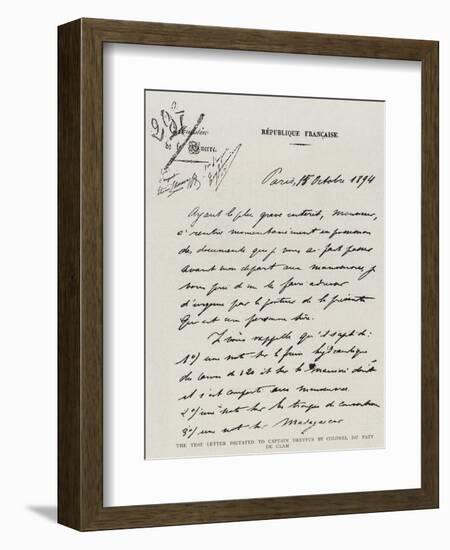 Ministère
de la Guerre.
RÉPUBLIQUE FRANÇAISE.
Paris, 15 Octobre 1894
Ayant le plus grave intérêt, Monsieur,
à rentrer momentanément en possession
des documents que je vous ai fait passer
avant mon départ aux manœuvres, je
vous prie de me le faire adresser
d'urgence par le porteur de la présente
qui est une personne sûre.
Je vous rappelle qu'il s'agit de :
1°) une note sur le frein hydraulique
du canon de 120 et sur la manière dont
il s'est comporté aux manœuvres
2°) une note sur les troupes de couverture
3°) une note sur Madagascar
THE TEST LETTER DICTATED TO CAPTAIN DREYFUS BY COLONEL DU PATY
DE CLAM